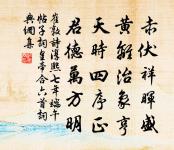 赤伏祥暉盛
黃離治象亨
天時四序正
君德萬方明
崔敦詩淳熙七年端午
帖子詞皇帝合六首詞
典網集